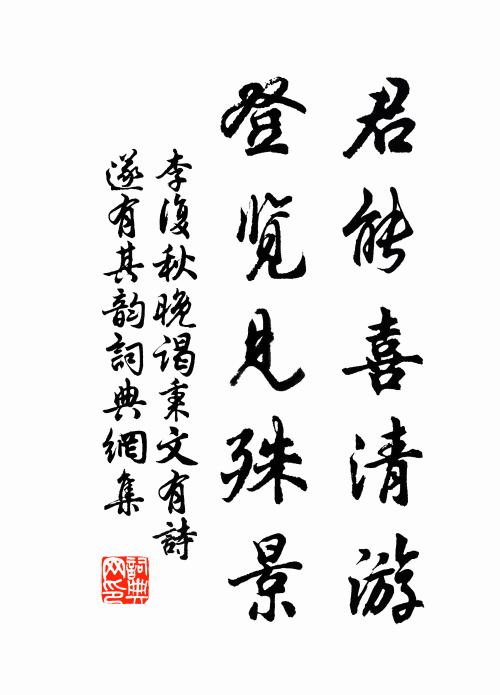 君能喜清游
登览见殊景
李復秋晚谒秉文有詩
遂有其韵詞典網集
詞典
网印